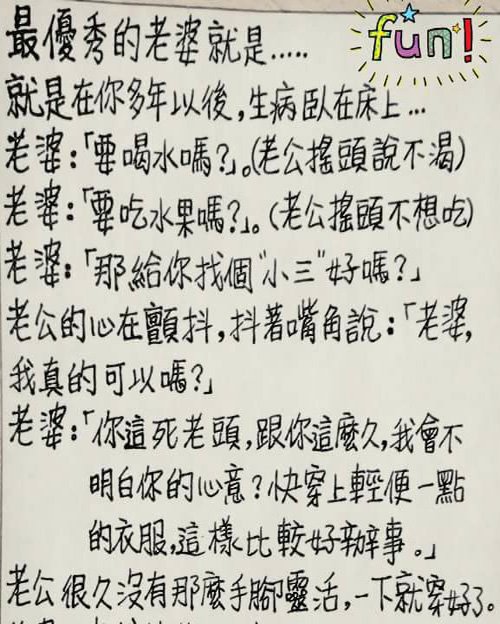 最優秀的老婆就是.....
fun!
就是在你多年以後,生病臥在床上...
老婆:「要喝水嗎?」。(老公搖頭說不渴)
老婆:「要吃水果嗎?」。(老公搖頭不想吃)
老婆:「那給你找個“小三”好嗎?」
老公的心在顫抖,抖著嘴角說:「老婆,
我真的可以嗎?」
老婆:「你這死老頭,跟你這麼久,我會不
明白你的心意?快穿上輕便一點
的衣服,這樣比較好辦事。」
老公很久沒有那麼手腳靈活,一下就穿好了。